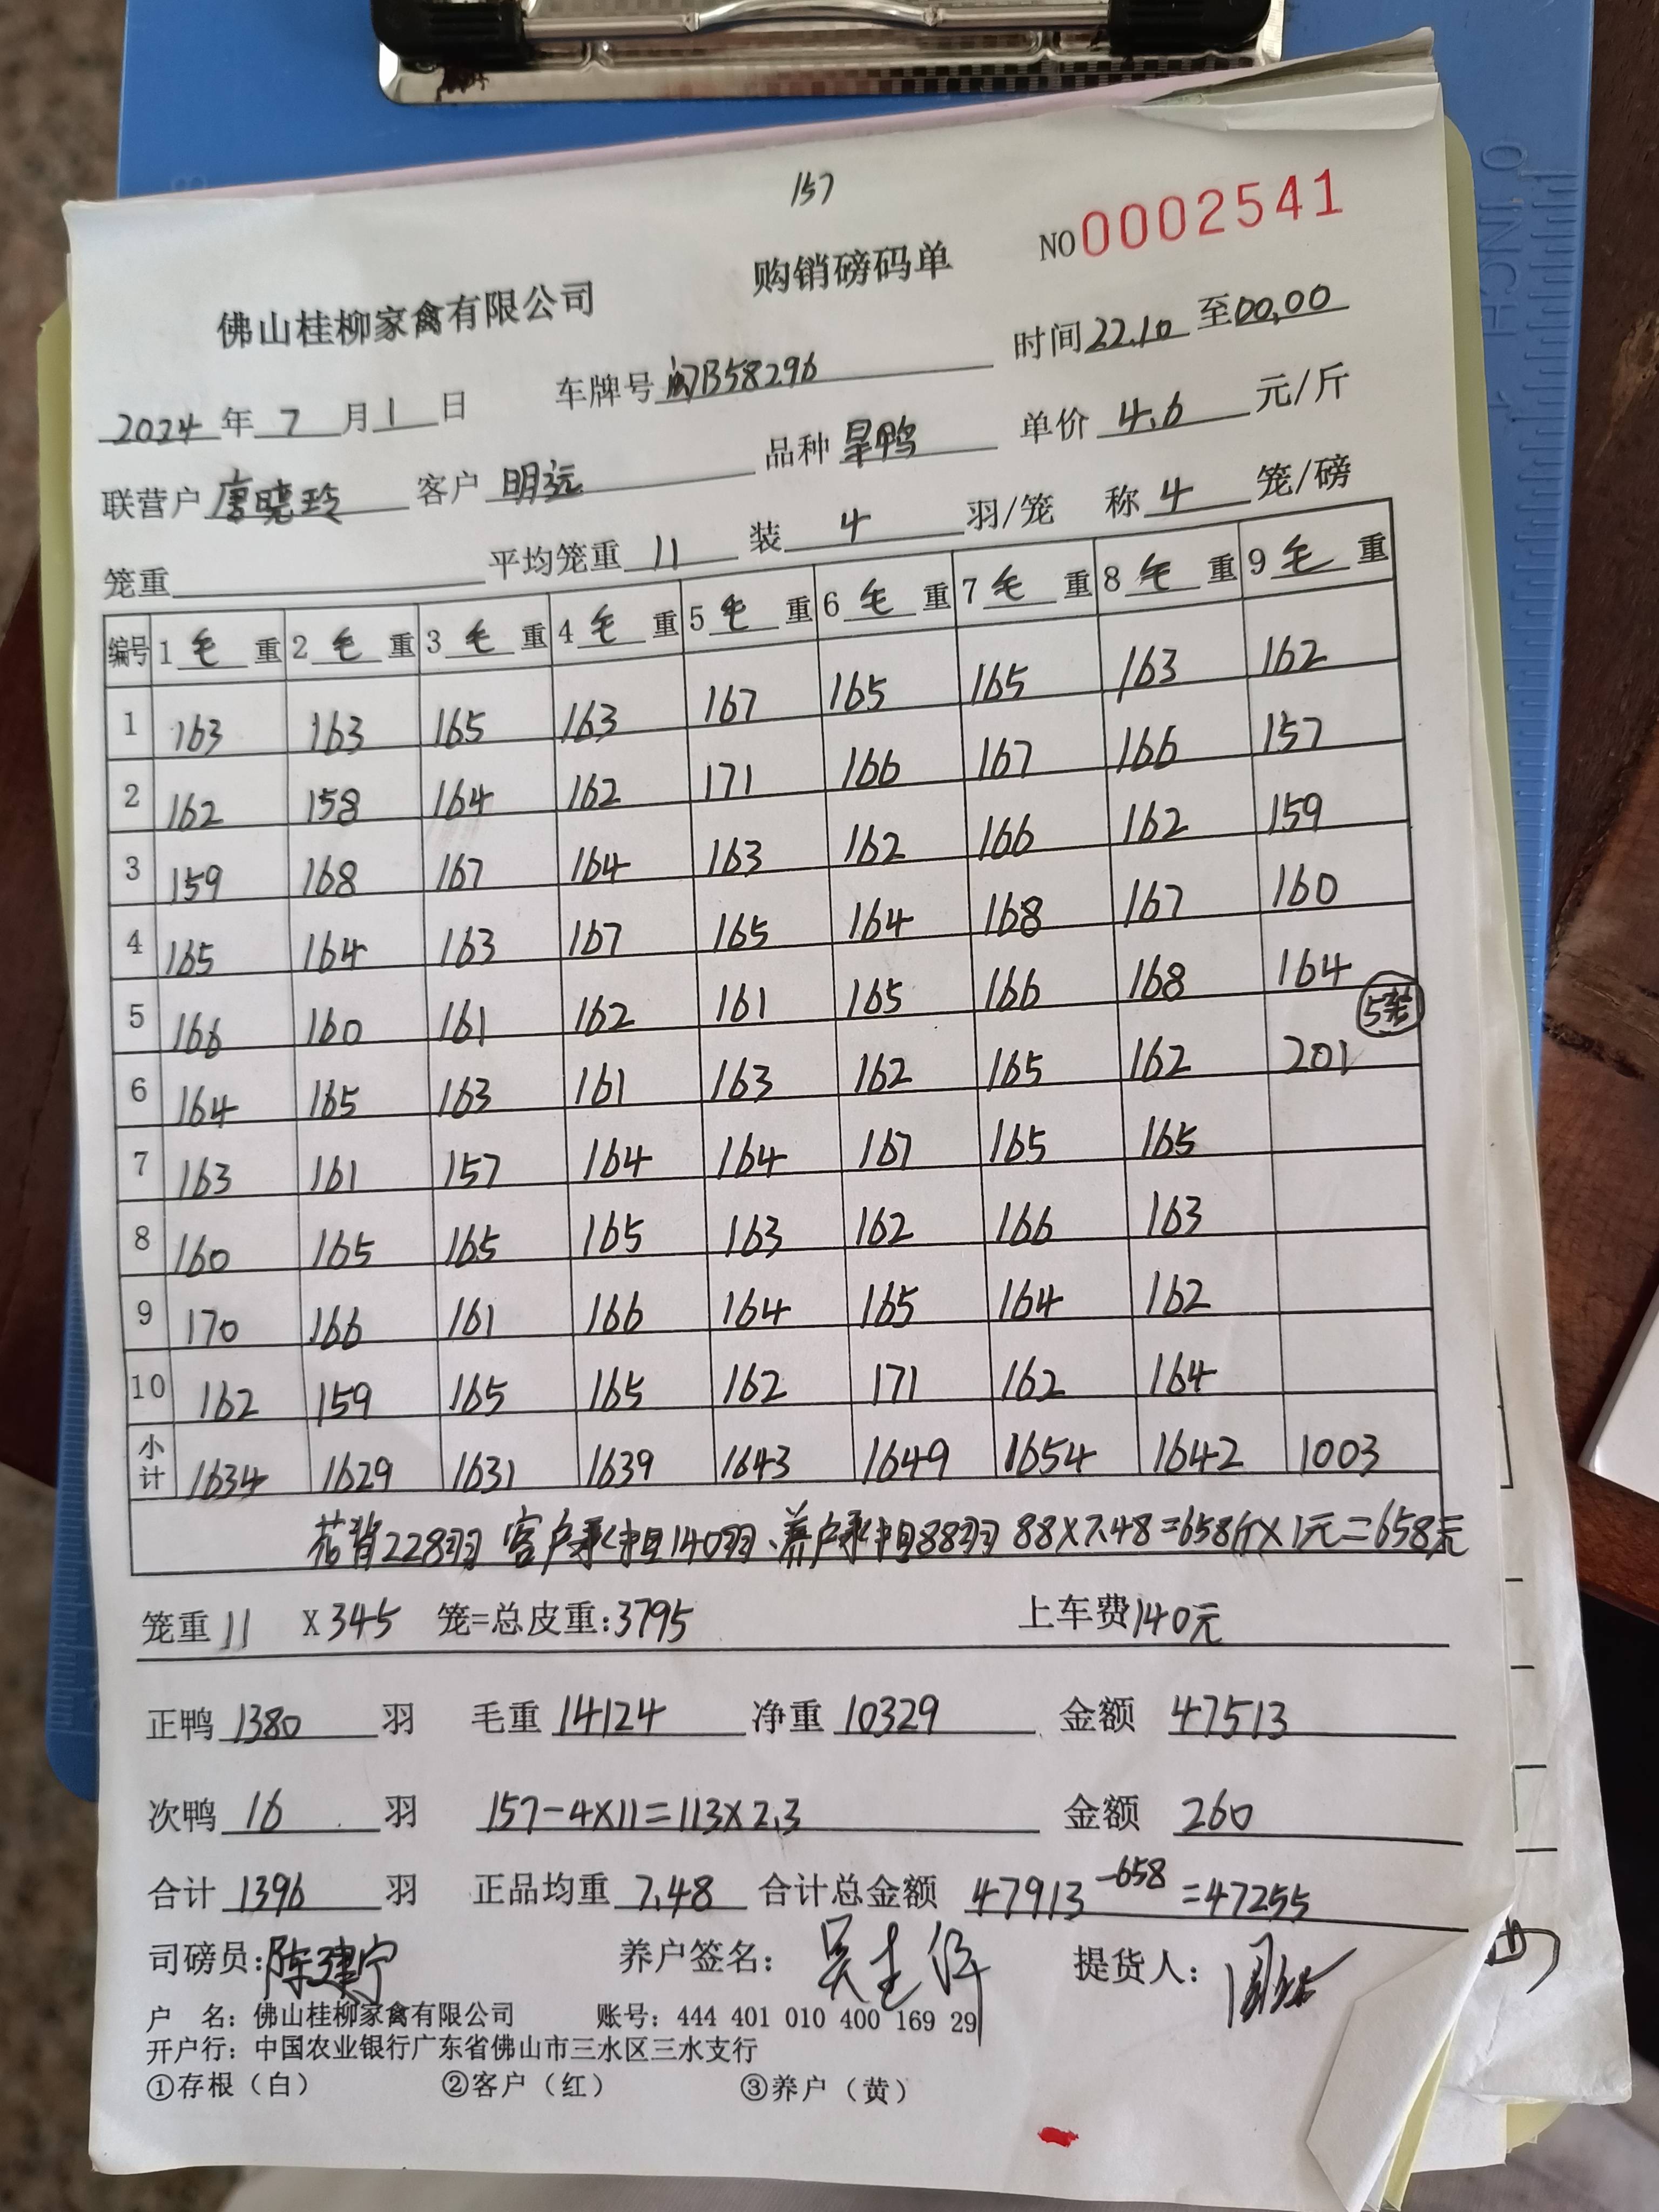 157
NO0002541
佛山桂柳家禽有限公司 购销磅码单
2024年7月1日 车牌号 闽B58296 时间22.10至00.00
联营户 唐晓玲 客户 明远 品种 旱鸭 单价 4.6 元/斤
笼重 平均笼重 11 装 4 羽/笼 称 4 笼/磅
编号 1毛重 2毛重 3毛重 4毛重 5毛重 6毛重 7毛重 8毛重 9毛重
1 163 163 165 163 167 165 165 163 162
2 162 158 164 162 171 166 167 166 157
3 159 168 167 164 163 162 166 162 159
4 165 164 163 167 165 164 168 167 160
5 166 160 161 162 161 165 166 168 164
5笼
6 164 165 163 161 163 162 165 162 201
7 163 161 157 164 164 167 165 165
8 160 165 165 165 163 162 166 163
9 170 166 161 166 164 165 164 162
10 162 159 165 165 162 171 162 164
小计 1634 1629 1631 1639 1643 1649 1654 1642 1003
花背228羽 客户承担140羽、养户承担88羽 88×7.48=658斤×1元=658元
笼重11 X345 笼=总皮重:3795 上车费140元
正鸭1380羽 毛重14124 净重10329 金额 47513
次鸭16羽 157-4×11=113×2.3 金额 260
合计1396羽 正品均重7.48 合计总金额 47913-658=47255
司磅员:陈建宁 养户签名: 提货人:
户 名:佛山桂柳家禽有限公司 账号:444 401 010 400 169 29
开户行:中国农业银行广东省佛山市三水区三水支行
①存根(白) ②客户(红) ③养户(黄)
INCH 1 0